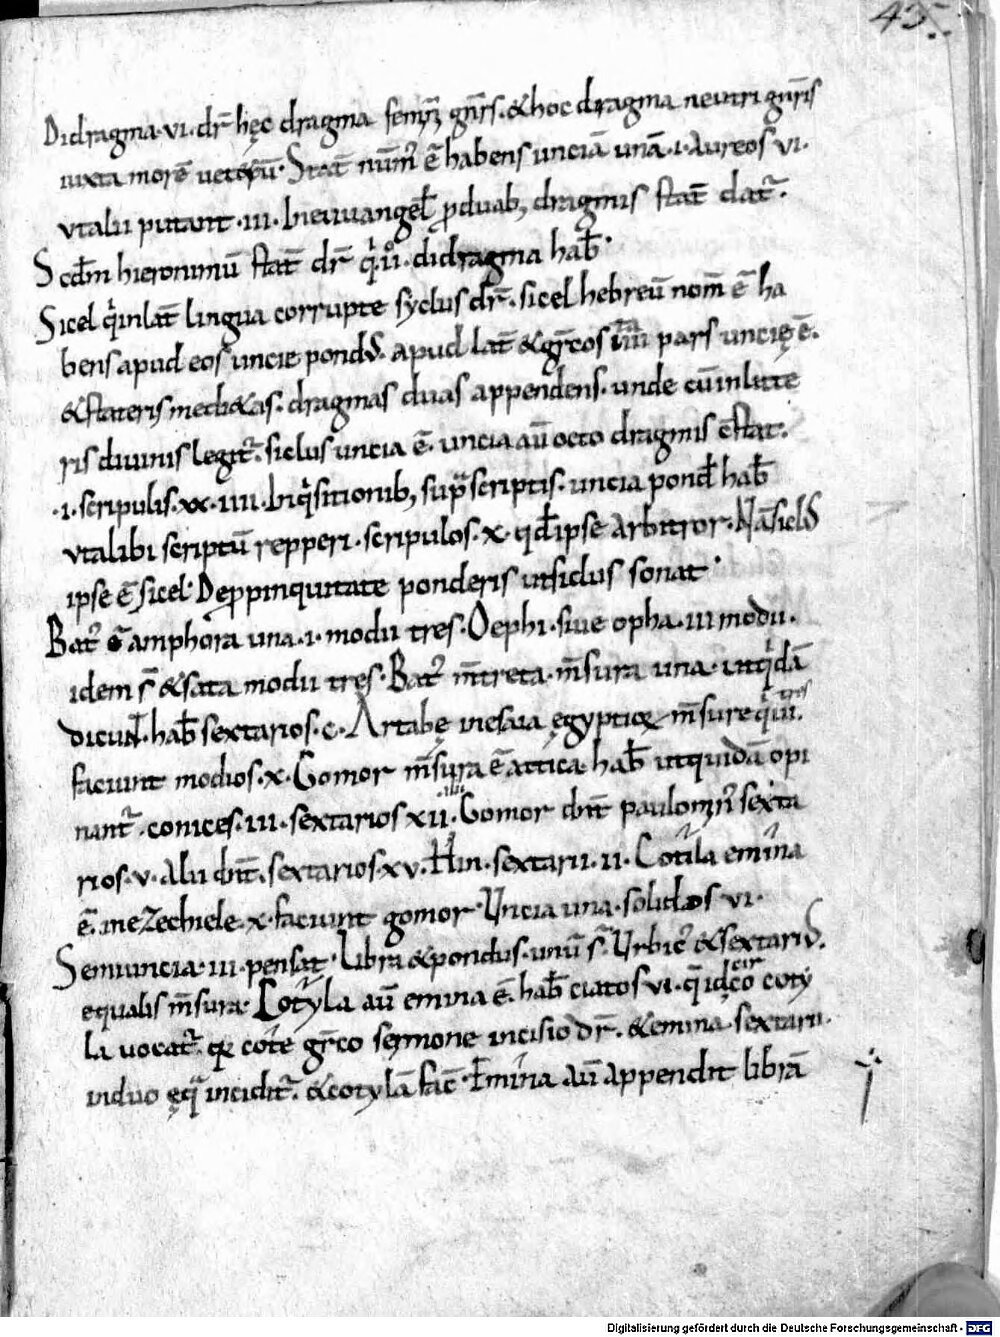 45.
Didragma·vi·dr̄ hęc dragma femiñ gn̄rs·&hoc dragma neutri gn̄ris
iuxta morē uet̄ū· Stat̄ num̄ ē habens unciā unā·i·Aureos vi·
vtalii putant·iii·Ineuuangel̄ pduab; dragmis stat̄ dat̄·
Scdm̄ hieronimū stat̄ dr̄ q̄ ii·didragma hab̄·
Sicel q̄ inlat̄ lingua corrupte syclus dr̄·sicel hebreū nom̄ ē ha
bens apud eos uncie pond̄·apud lat̄ &gr̄cos iiii pars uncię ē·
&stateris med&as·dragmas duas appendens·unde cūinlitte
ris diuinis legit̄·siclus uncia ē·uncia aū octo dragmis c̄stat̄·
·i·scripulis·xx·iiii·Inq̄sitionib; sup̄scriptis·uncia pond̄ hab̄
vtalibi scriptū repperi·scripulos·x·qd̄ ipse Arbitror·Nā sicl̄s
ipse ē sicel·Deppinquitate ponderis ut siclus sonat·
Bat̄ ē amphora una·i·modii tres·Oephi·siue opha·iii modii·
idem s̄ &sata modii tres·Bat̄ m̄treta·m̄sura una·utq̄dā
dicun̄t·hab̄ sextarios·c·Artabę inesaia ęgyptię m̄sure q̄ iiii·
tres
faciunt modios·x·Gomor m̄sura ē attica·hab̄ utquidā opi
nant̄·conices·iii·sextarios xii·Gomor dn̄t paulomin̄ sexta
iiii
rios·v·Alii dn̄t·sextarios·xv·Hin·sextarii·ii·Cotila emina
ē·ineZechiele·x·faciunt gomor·Uncia una·solidos vi·
Semiuncia·iii·pensat·Libra &pondus·unū s̄·Urbic̄ &sextari᷒·
equalis m̄sura·Cotyla aū emina ē·hab̄ ciatos vi·q̄ idc̄o coty
cir
la uocat̄·q̄ cote gr̄co sermone incisio dr̄·&emina·sextarii·
induo ęq̄ incidit̄·&cotylā fac̄·Emina aū appendit librā
Digitalisierung gefördert durch die Deutsche Forschungsgemeinschaft - DFG